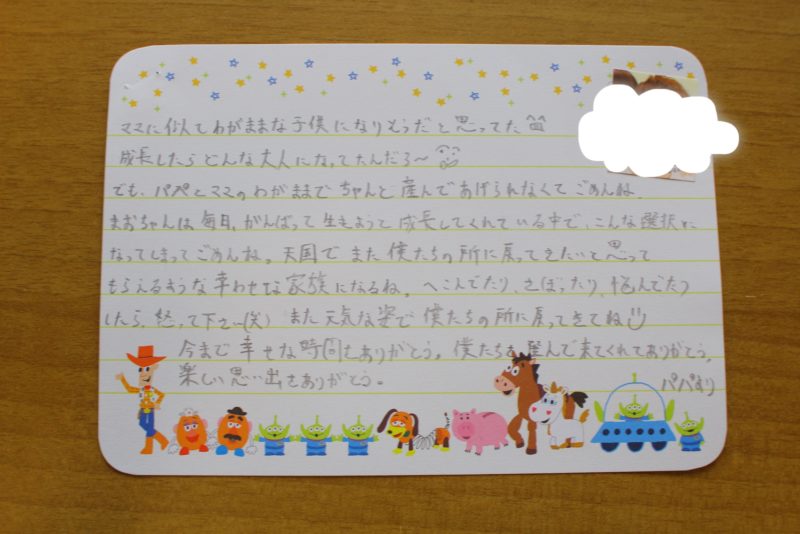 ママに似てわがままな子供になりそうだと思ってた
成長したらどんな大人になってたんだろ〜
でも、パパとママのわがままでちゃんと産んであげられなくてごめんね。
まおちゃんは毎日、がんばって生きようと成長してくれている中で、こんな選択に
なってしまってごめんね。天国でまた僕たちの所に戻ってきたいと思って
もらえるような幸わせな家族になるね。へこんでたり、さぼったり、悩んでたり
したら、怒って下さい(笑) また元気な姿で僕たちの所に戻ってきてね
今まで幸せな時間をありがとう。僕たちを選んで来てくれてありがとう。
楽しい思い出をありがとう。
パパより